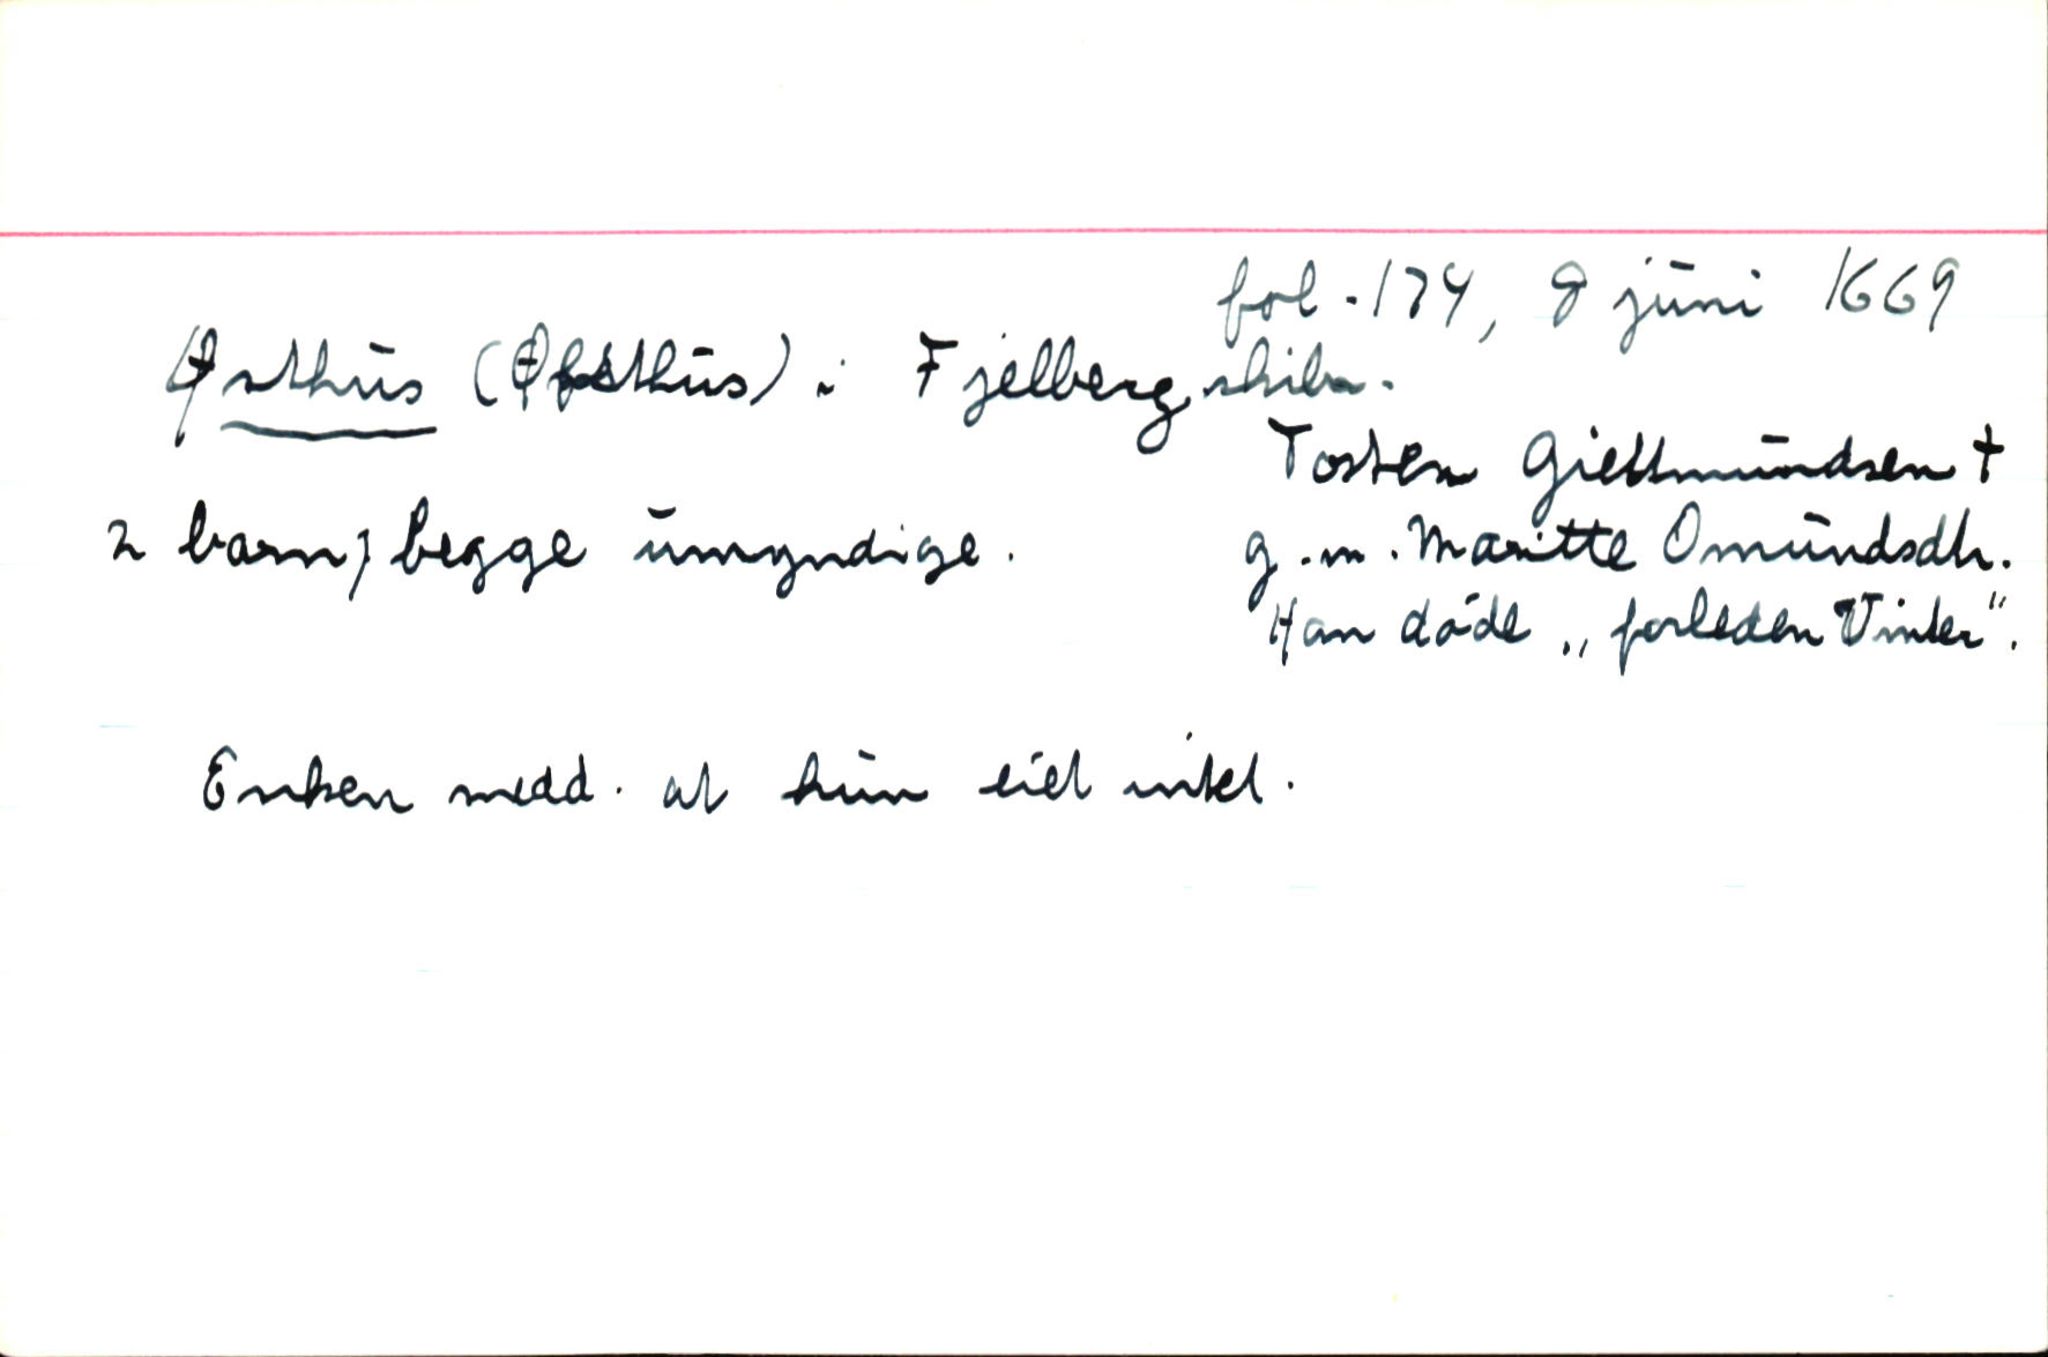 fol. 174, 8 juni 1669
Østhus (Øfsthus) i Fjelberg skibr.
Tosten Gietmundsen †
2 barn, begge umyndige. g.m. Maritte Omundsdtr.
Han døde „forleden Vinter".
Enken medd. at hun eiet intet.